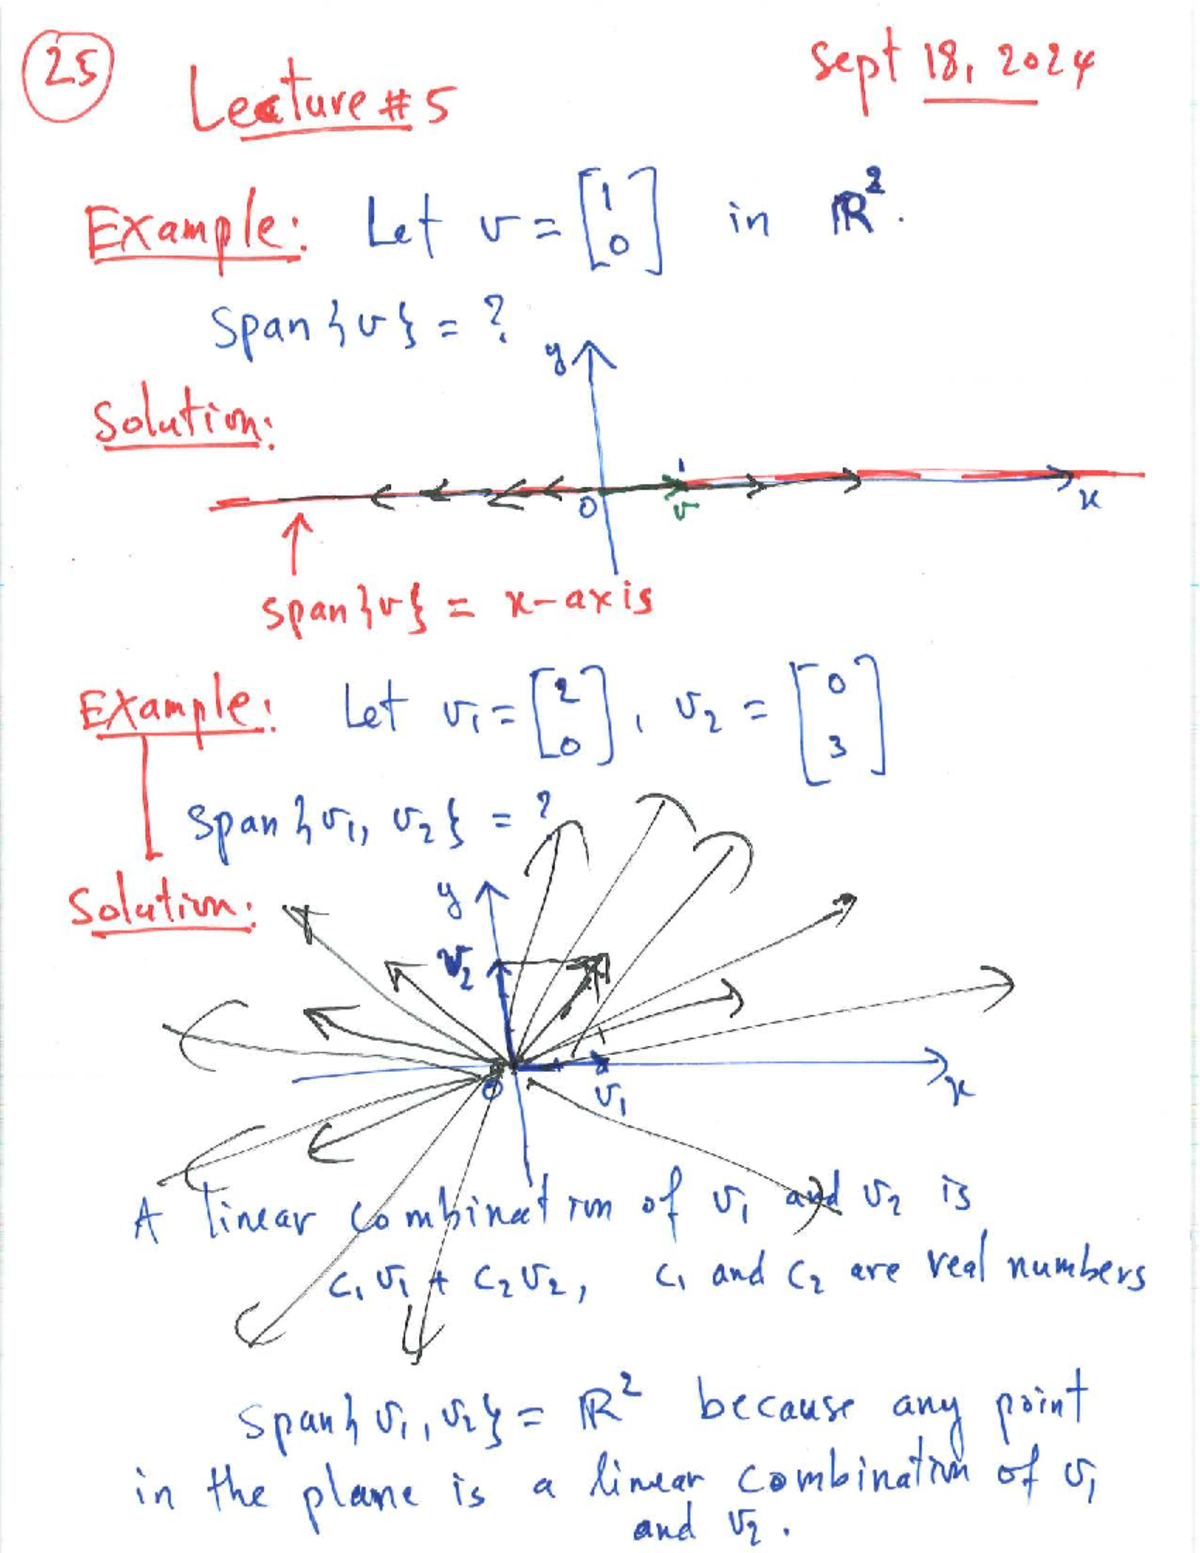 25
Lecture # 5
Sept 18, 2024
Example: Let v = [1 0] in ℝ².
Span {v} = ?
Solution:
y
1
0
v
x
span {v} = x-axis
Example: Let v₁ = [2 0], v₂ = [0 3]
Span {v₁, v₂} = ?
Solution:
y
v₂
0
v₁
x
A linear combination of v₁ and v₂ is
c₁v₁ + c₂v₂, c₁ and c₂ are real numbers
Span {v₁, v₂} = ℝ² because any point
in the plane is a linear combination of v₁
and v₂.